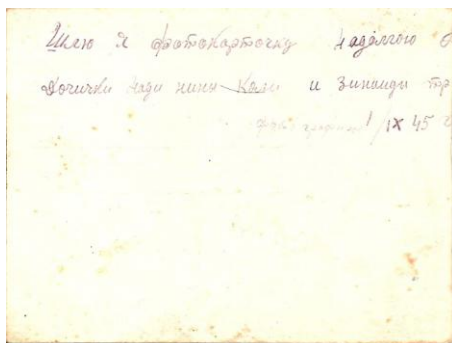 Шлю я фотокарточку надолгою
Дочички Нади нины Кали и Зинаиды
1/IX 45 г